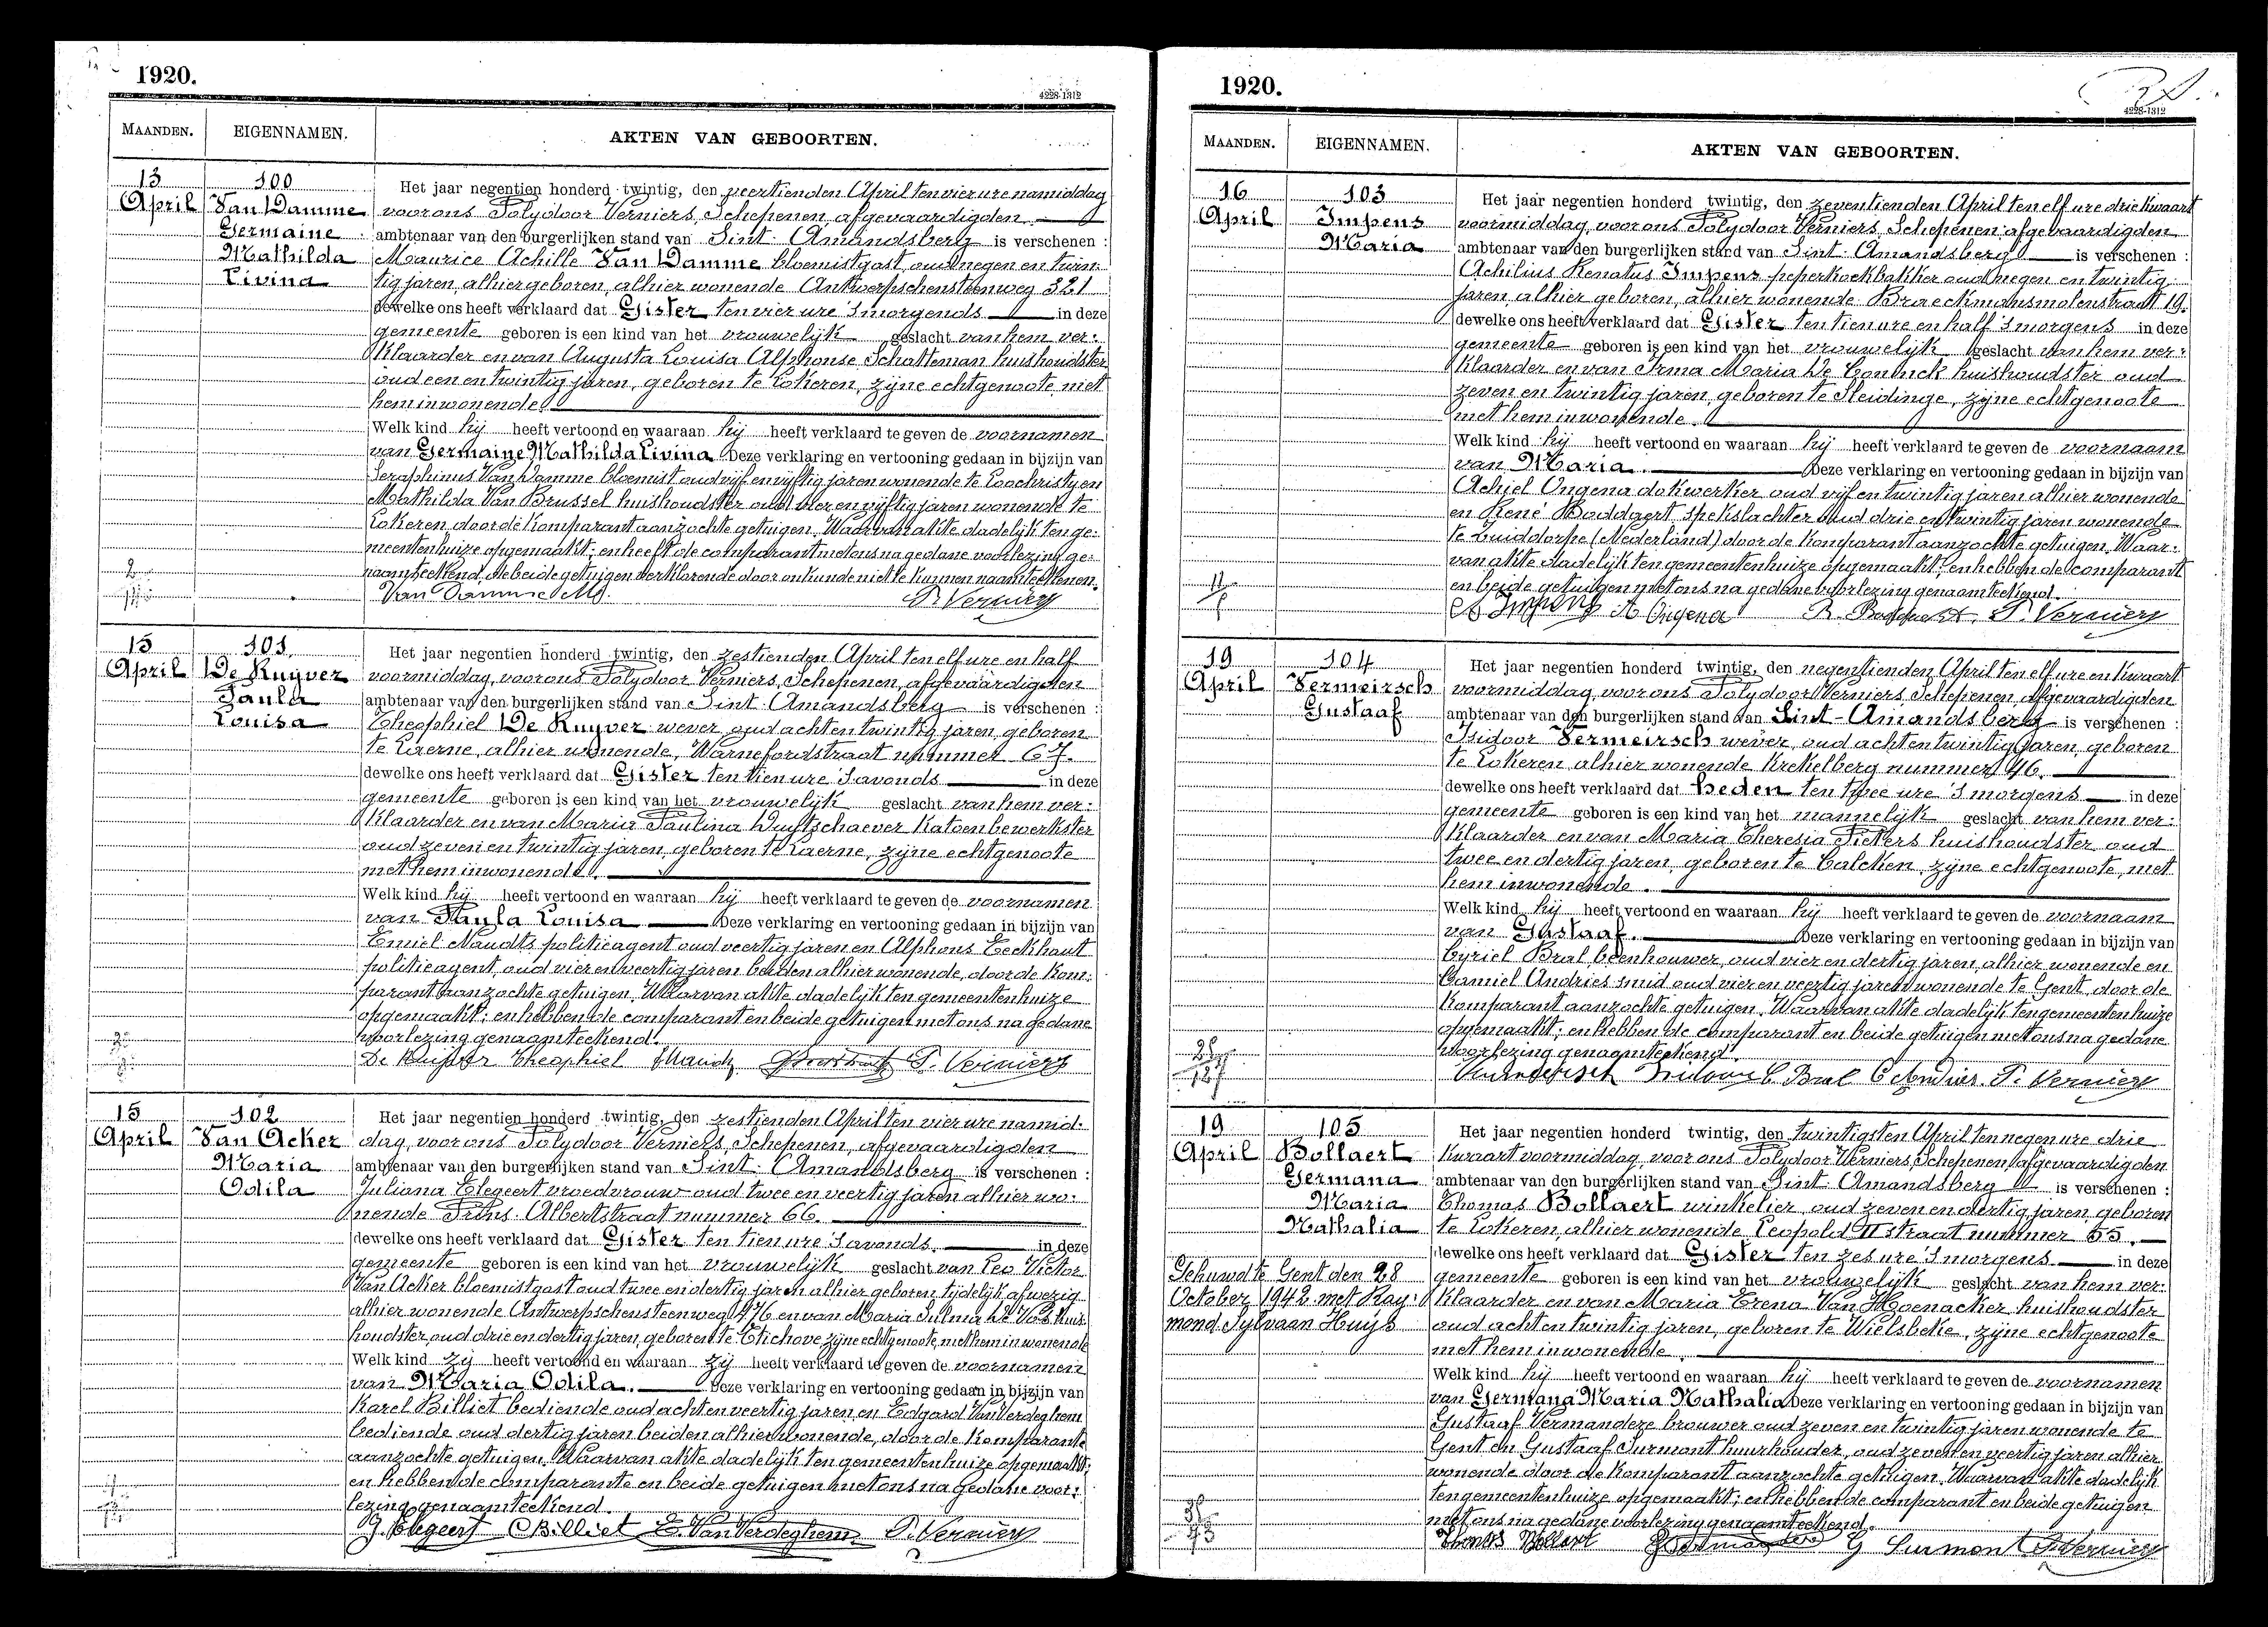 1920.
4228-1312
MAANDEN. EIGENNAMEN. AKTEN VAN GEBOORTEN.
13 April
100
Van Damme
Germaine
Mathilda
Livina
Het jaar negentien honderd twintig, den veertienden April ten vier ure namiddag
voor ons Polydoor Verniers, Schepenen, afgevaardigden
ambtenaar van den burgerlijken stand van Sint-Amandsberg is verschenen :
Maurice Achille Van Damme bloemistgast, oud negen en twin-
tig jaren, alhier geboren, alhier wonende Antwerpschensteenweg 321
dewelke ons heeft verklaard dat Gister ten vier ure 's morgends in deze
gemeente geboren is een kind van het vrouwelijk geslacht van hem ver-
klaarder en van Augusta Louisa Alphonse Schatteman huishoudster
oud een en twintig jaren, geboren te Lokeren, zijne echtgenoote, met
hem inwonende.
Welk kind hij heeft vertoond en waaraan hij heeft verklaard te geven de voornamen
van Germaine Mathilda Livina Deze verklaring en vertooning gedaan in bijzijn van
Seraphinus Van Damme bloemist oud vijf en vijftig jaren wonende te Loochristy en
Mathilda Van Brussel huishoudster oud vier en vijftig jaren wonende te
Lokeren, door de komparant aanzochte getuigen. Waarvan akte dadelijk ten ge-
meentenhuize opgemaakt; en heeft de comparant met ons na gedane voorlezing ge-
naamteekend, de beide getuigen verklarende door onkunde niet te kunnen naamteekenen.
Van Damme M. P. Verniers
15 April
101
De Kuyver
Paula
Louisa
Het jaar negentien honderd twintig, den zestienden April ten elf ure en half
voormiddag, voor ons Polydoor Verniers, Schepenen, afgevaardigden
ambtenaar van den burgerlijken stand van Sint-Amandsberg is verschenen :
Theophiel De Kuyver wever, oud acht en twintig jaren, geboren
te Laerne, alhier wonende, Warnefordstraat nummer 67.
dewelke ons heeft verklaard dat Gister ten tien ure 's avonds in deze
gemeente geboren is een kind van het vrouwelijk geslacht van hem ver-
klaarder en van Maria Paulina Duytschaever katoenbewerkster
oud zeven en twintig jaren, geboren te Laerne, zijne echtgenoote
met hem inwonende.
Welk kind hij heeft vertoond en waaraan hij heeft verklaard te geven de voornamen
van Paula Louisa Deze verklaring en vertooning gedaan in bijzijn van
Emiel Naudts politieagent oud veertig jaren en Alphons Eeckhaut
politieagent, oud vier en veertig jaren beiden alhier wonende, door de kom-
parant aanzochte getuigen. Waarvan akte dadelijk ten gemeentenhuize
opgemaakt; en hebben de comparant en beide getuigen met ons na gedane
voorlezing genaamteekend.
De Kuijver Theophiel P. Verniers
15 April
102
Van Acker
Maria
Odila
Het jaar negentien honderd twintig, den zestienden April ten vier ure namid-
dag, voor ons Polydoor Verniers, Schepenen, afgevaardigden
ambtenaar van den burgerlijken stand van Sint-Amandsberg is verschenen :
Juliana Elegeert vroedvrouw oud twee en veertig jaren alhier wo-
nende Prins Albertstraat nummer 66.
dewelke ons heeft verklaard dat Gister ten tien ure 's avonds. in deze
gemeente geboren is een kind van het vrouwelijk geslacht van Leo Victor
Van Acker bloemistgast oud twee en dertig jaren alhier geboren, tijdelijk afwezig
alhier wonende Antwerpschensteenweg 476 en van Maria Sulma De Vos huis-
houdster, oud drie en dertig jaren, geboren te Etichove, zijne echtgenoote, met hem inwonende
Welk kind zij heeft vertoond en waaraan zij heeft verklaard te geven de voornamen
van Maria Odila. Deze verklaring en vertooning gedaan in bijzijn van
Karel Billiet bediende oud acht en veertig jaren en Edgard Van Verdeghem
bediende oud dertig jaren beiden alhier wonende, door de komparante
aanzochte getuigen. Waarvan akte dadelijk ten gemeentenhuize opgemaakt;
en hebben de comparante en beide getuigen met ons na gedane voor-
lezing genaamteekend.
J. Elegeert C Billiet E. Van Verdeghem P. Verniers
1920.
4228-1312
MAANDEN. EIGENNAMEN. AKTEN VAN GEBOORTEN.
16 April
103
Impens
Maria
Het jaar negentien honderd twintig, den zeventienden April ten elf ure drie kwaart
voormiddag, voor ons Polydoor Verniers, Schepenen, afgevaardigden
ambtenaar van den burgerlijken stand van Sint-Amandsberg is verschenen :
Achilius Renatus Impens peperkoekbakker oud negen en twintig
jaren alhier geboren, alhier wonende Braeckmansmolenstraat 19.
dewelke ons heeft verklaard dat Gister ten tien ure en half 's morgens in deze
gemeente geboren is een kind van het vrouwelijk geslacht van hem ver-
klaarder en van Irma Maria De Coninck huishoudster oud
zeven en twintig jaren, geboren te Sleidinge, zijne echtgenoote
met hem inwonende.
Welk kind hij heeft vertoond en waaraan hij heeft verklaard te geven de voornaam
van Maria. Deze verklaring en vertooning gedaan in bijzijn van
Achiel Ongena dokwerker oud vijf en twintig jaren alhier wonende
en René Boddaert spekslachter oud drie en twintig jaren wonende
te Zuiddorpe (Nederland) door de komparant aanzochte getuigen. Waar-
van akte dadelijk ten gemeentenhuize opgemaakt; en hebben de comparant
en beide getuigen met ons na gedane voorlezing genaamteekend.
A Impens A Ongena R. Boddaert. P. Verniers
19 April
104
Vermeirsch
Gustaaf
Het jaar negentien honderd twintig, den negentienden April ten elf ure en kwaart
voormiddag, voor ons Polydoor Verniers, Schepenen, afgevaardigden
ambtenaar van den burgerlijken stand van Sint-Amandsberg is verschenen :
Isidoor Vermeirsch wever, oud acht en twintig jaren, geboren
te Lokeren, alhier wonende Krekelberg nummer 46.
dewelke ons heeft verklaard dat heden ten twee ure 's morgens in deze
gemeente geboren is een kind van het mannelijk geslacht van hem ver-
klaarder en van Maria Theresia Pieters huishoudster oud
twee en dertig jaren, geboren te Calcken, zijne echtgenoote, met
hem inwonende.
Welk kind hij heeft vertoond en waaraan hij heeft verklaard te geven de voornaam
van Gustaaf. Deze verklaring en vertooning gedaan in bijzijn van
Cyriel Bral beenhouwer, oud vier en dertig jaren, alhier wonende en
Camiel Andries smid oud vier en veertig jaren wonende te Gent, door de
komparant aanzochte getuigen. Waarvan akte dadelijk ten gemeentenhuize
opgemaakt; en hebben de comparant en beide getuigen met ons na gedane
voorlezing genaamteekend.
Vermeirsch Isidoor C Bral C Andries. P. Verniers
19 April
105
Bollaert
Germana
Maria
Nathalia
Gehuwd te Gent den 28
October 1942 met Ray-
mond Sylvaan Huijs
Het jaar negentien honderd twintig, den twintigsten April ten negen ure drie
kwaart voormiddag, voor ons Polydoor Verniers, Schepenen, afgevaardigden
ambtenaar van den burgerlijken stand van Sint-Amandsberg is verschenen :
Thomas Bollaert winkelier, oud zeven en dertig jaren, geboren
te Lokeren, alhier wonende Leopold II straat nummer 55.
dewelke ons heeft verklaard dat Gister ten zes ure 's morgens in deze
gemeente geboren is een kind van het vrouwelijk geslacht van hem ver-
klaarder en van Maria Irena Van Hoenacker huishoudster
oud acht en twintig jaren, geboren te Wielsbeke, zijne echtgenoote
met hem inwonende.
Welk kind hij heeft vertoond en waaraan hij heeft verklaard te geven de voornamen
van Germana Maria Nathalia Deze verklaring en vertooning gedaan in bijzijn van
Gustaaf Vermandere brouwer oud zeven en twintig jaren wonende te
Gent en Gustaaf Surmont huurhouder, oud zeven en veertig jaren alhier
wonende door de komparant aanzochte getuigen. Waarvan akte dadelijk
ten gemeentenhuize opgemaakt; en hebben de comparant en beide getuigen
met ons na gedane voorlezing genaamteekend.
Thomas Bollaert G Vermandere G Surmont P. Verniers